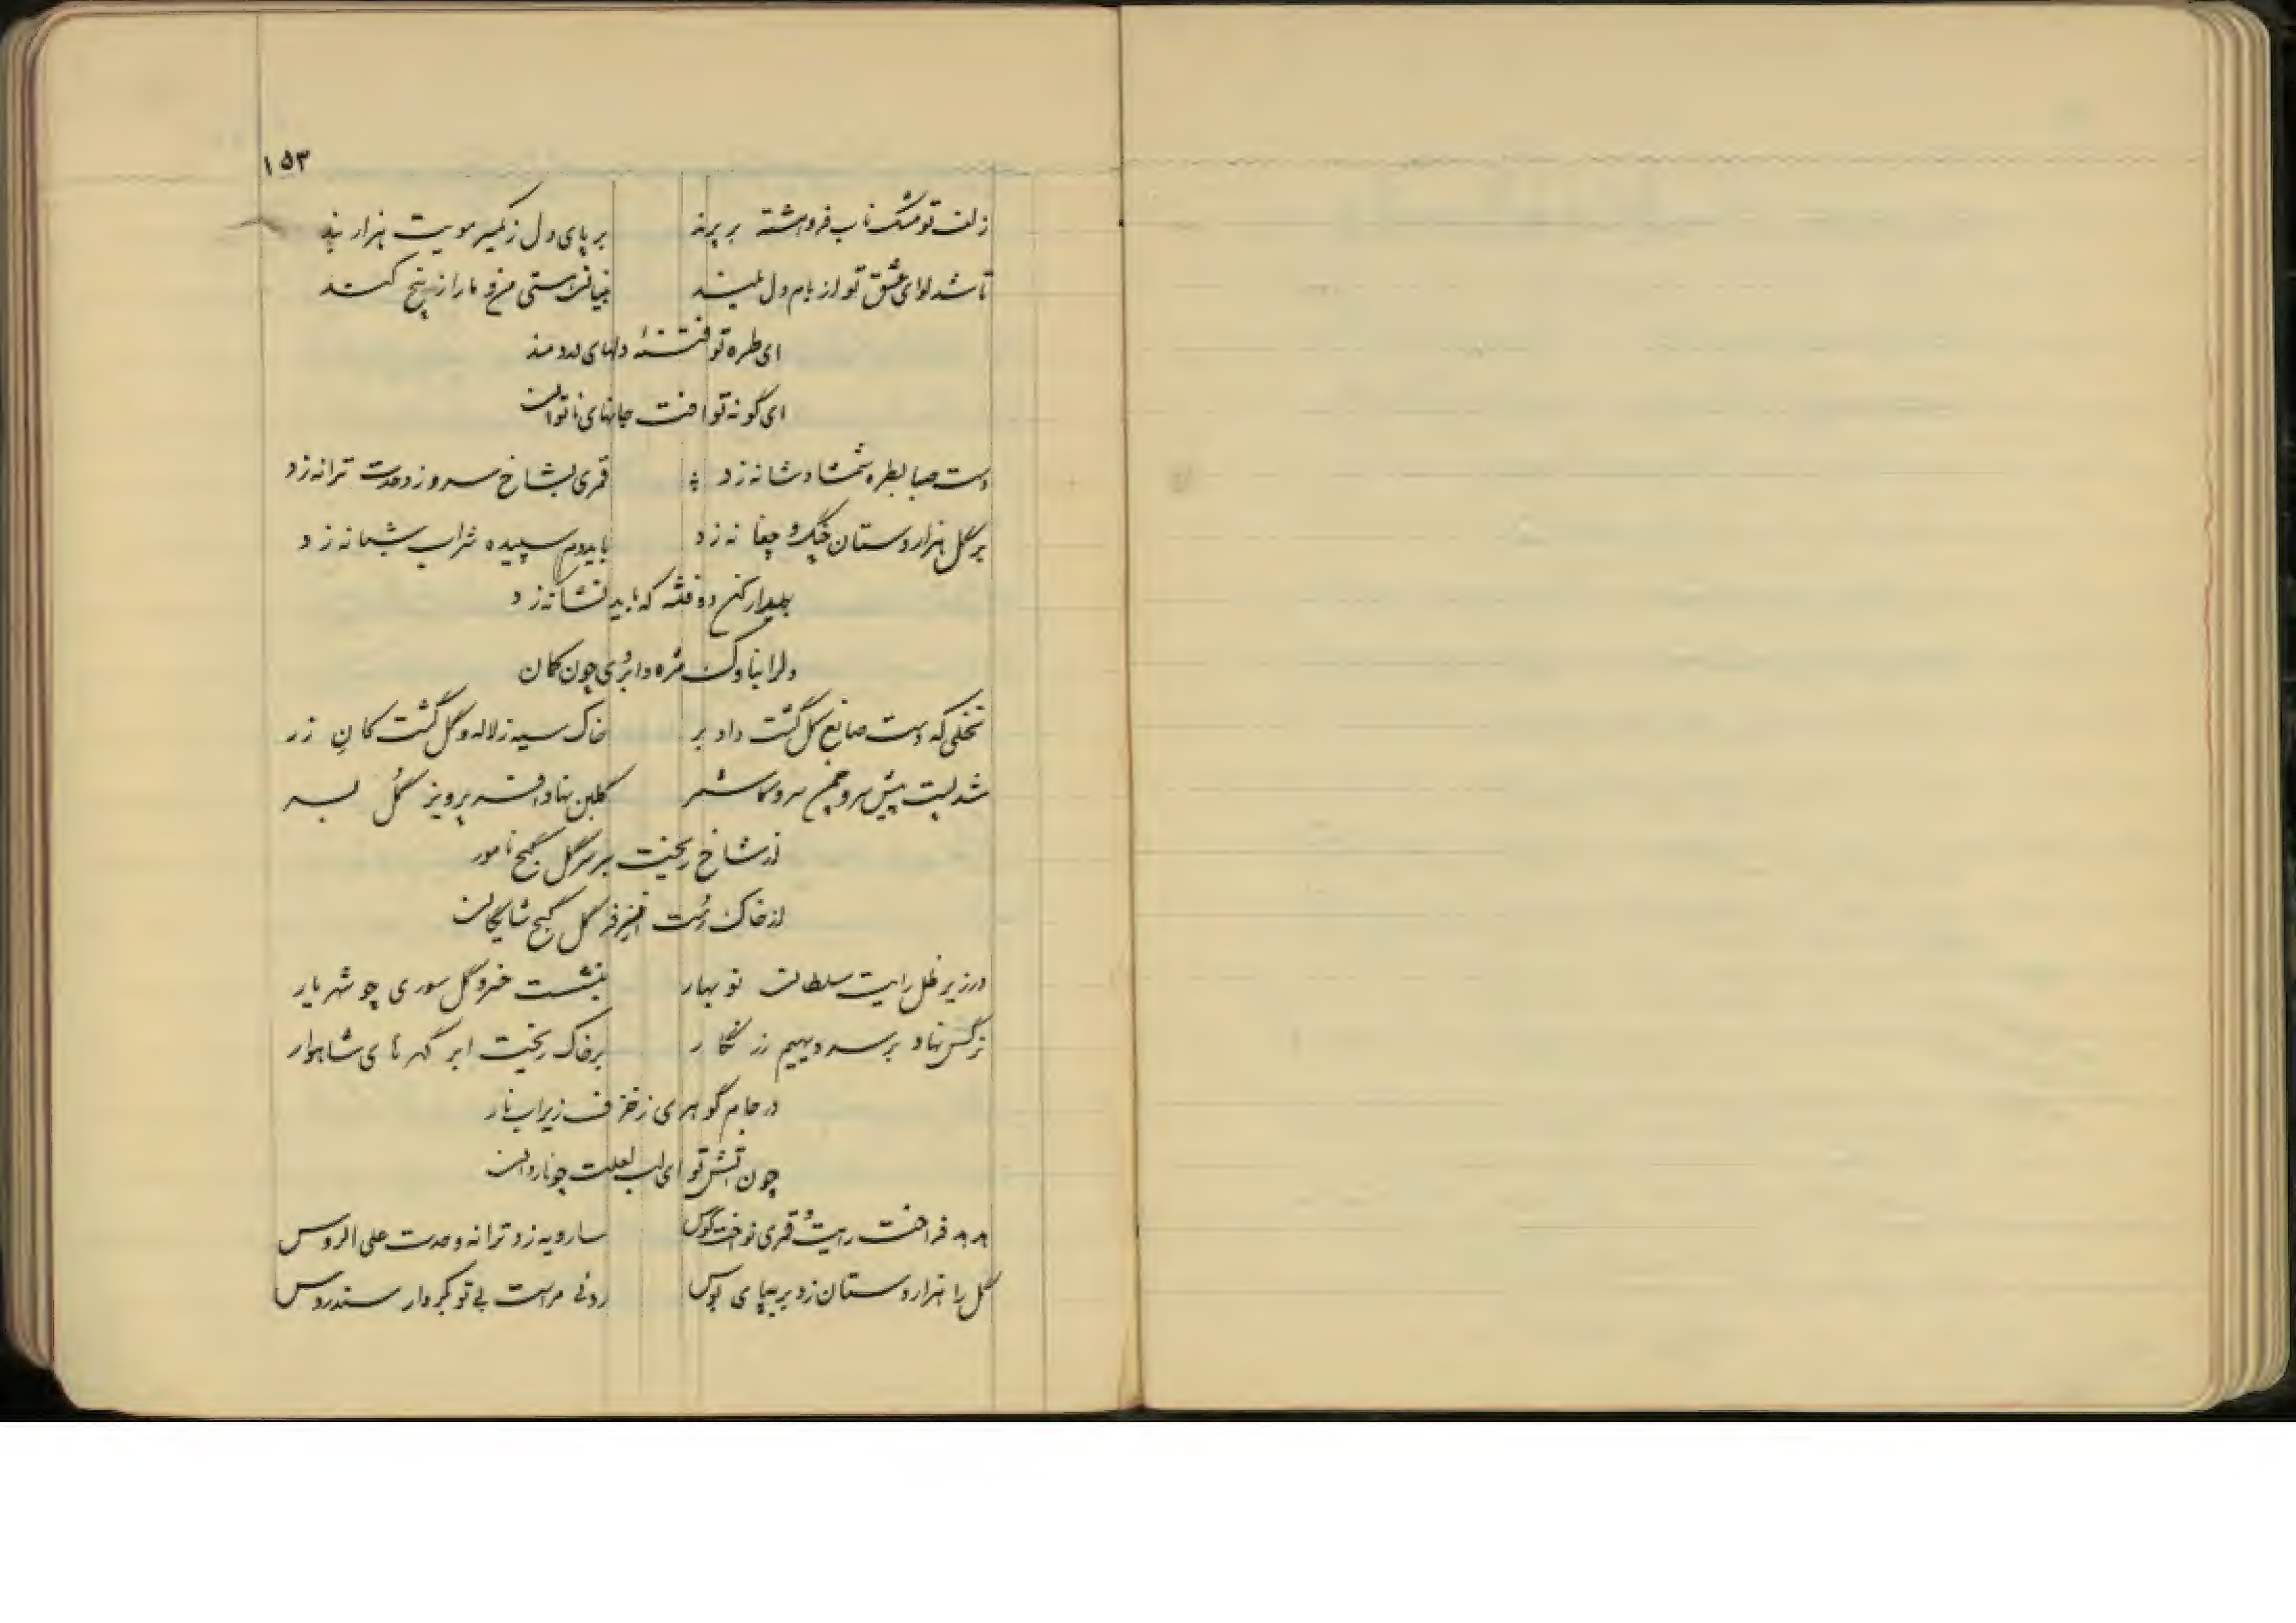 ۱۵۳
زلف تو مشک ناب فروهشته بر پرند بر پای دل ز گیسو مویت هزار بند
تا شد لوای عشق تو از بام دل بلند بنیان هستی من و ما را ز بیخ کند
ای طره تو فتنهٔ دلهای دردمند
ای گونه تو افت جانهای ناتوان
دست صبا بطره شمشاد شانه زد قمری بشاخ سرو ز وحدت ترانه زد
بر گل هزاردستان چنگ و چغانه زد باید دم سپیده شراب شبانه زد
بیدار کن دو فتنه که باید نشانه زد
دلرا بناوک مژه و ابروی چون کمان
نخلی که دست صانع گل گشت داد بر خاک سیه ز لاله و گل گشت کان زر
شد پست پیش سرو چمن سرو کاشمر گلبن نهاد افسر پرویز گل بسر
از شاخ ریخت بر سر گل گنج نامور
از خاک رست از فر گل گنج شایگان
در زیر ظل رایت سلطان نو بهار بنشست خسرو گل سوری چو شهریار
نرگس نهاد بر سر دیهیم زر نگار بر خاک ریخت ابر گهر های شاهوار
در جام گوهری ز خزف ریز اب نار
چون اتش تو ای لب لعلت چو ناردان
فراخت رایت و قمری نواخت کوس سارویه زد ترانه وحدت علی الروس
گل را هزاردستان زد بر بپای بوس روئی مراست بی تو بکردار سندروس